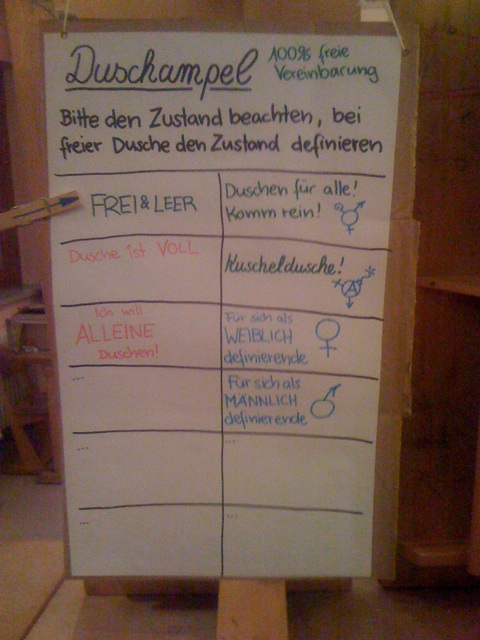 Duschampel
100% freie
Vereinbarung
Bitte den Zustand beachten, bei
freier Dusche den Zustand definieren
FREI & LEER
Duschen für alle!
Komm rein!
Dusche ist VOLL
Kuscheldusche!
A
Ich will
ALLEINE
Duschen!
Für sich als
WEIBLICH
definierende
...
Für sich als
MÄNNLICH
definierende
...
...
...
...